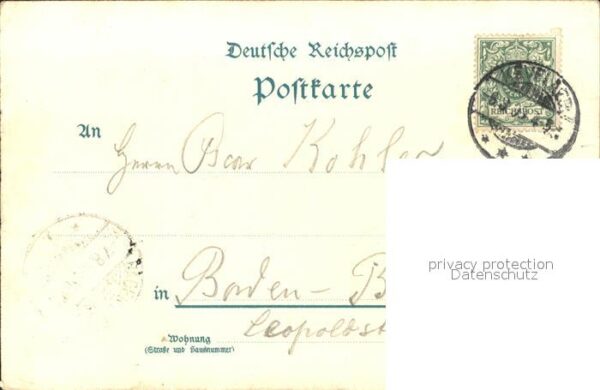 Deutsche Reichspost
Postkarte
REICHSPOST
An
Herrn Oscar Kohler
privacy protection
Datenschutz
in Baden-B
Leopoldst
Wohnung
(Straße und Hausnummer)